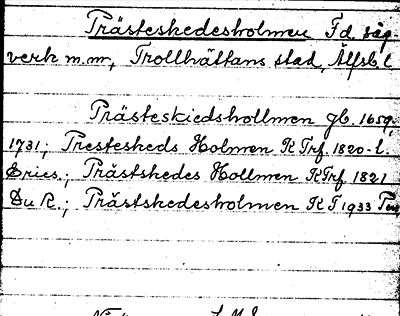 Prästeskedesholmen Fd. såg-
verk m.m., Trollhättans stad, Älfsb. l.
Prästeskiedshollmen gb. 1659,
1731; Prestesheds Holmen KTrf. 1820-l.
Eries.; Prästshedes Hollmen KTrf 1821
Du R.; Prästskedesholmen KF 1933